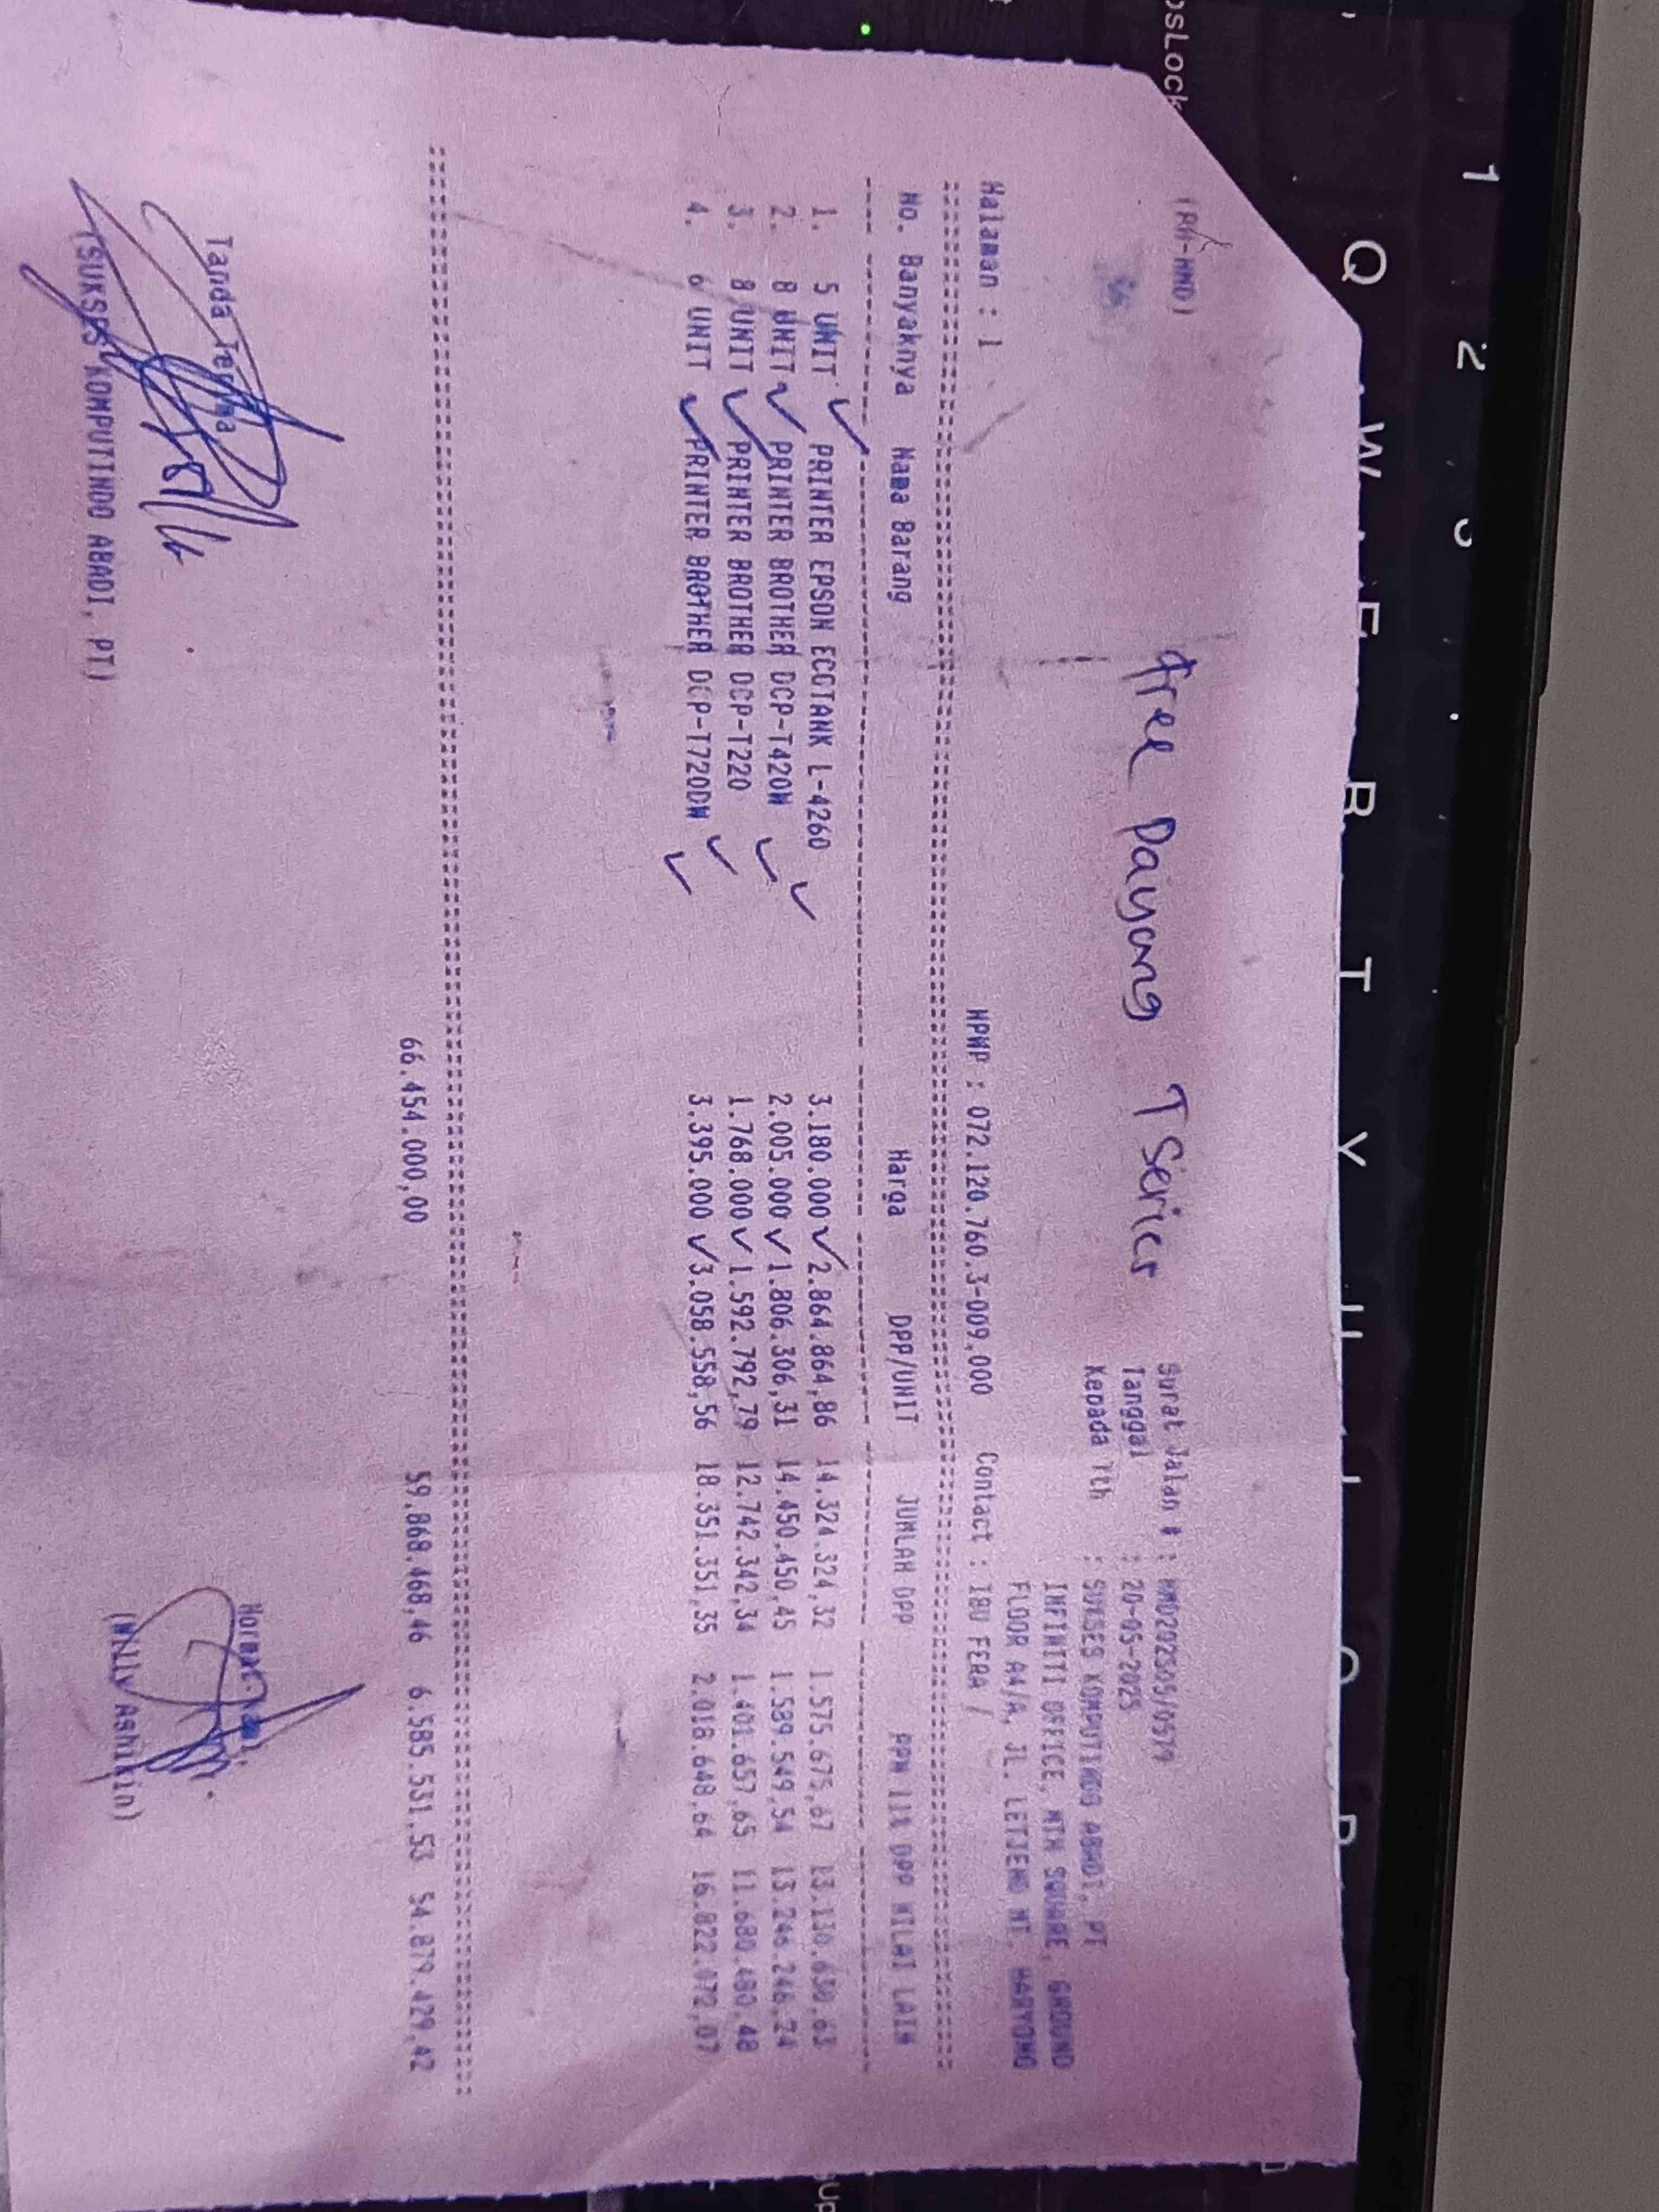 (PA-HMD)
free Payung T Series
Surat Jalan # : HMD202505/0579
Tanggal : 20-05-2025
Kepada Yth : SUKSES KOMPUTINDO ABADI, PT
INFINITI OFFICE, MTH SQUARE, GROUND
FLOOR A4/A, JL. LETJEND MT. HARYONO
Halaman : 1 NPWP : 072.120.760.3-009.000 Contact : IBU FERA /
No. Banyaknya Nama Barang Harga DPP/UNIT JUMLAH DPP PPN 11% DPP NILAI LAIN
1. 5 UNIT PRINTER EPSON ECOTANK L-4260 3.180.000 2.864.864,86 14.324.324,32 1.575.675,67 13.130.630,63
2. 8 UNIT PRINTER BROTHER DCP-T420W 2.005.000 1.806.306,31 14.450.450,45 1.589.549,54 13.246.246,24
3. 8 UNIT PRINTER BROTHER DCP-T220 1.768.000 1.592.792,79 12.742.342,34 1.401.657,65 11.680.480,48
4. 6 UNIT PRINTER BROTHER DCP-T720DW 3.395.000 3.058.558,56 18.351.351,35 2.018.648,64 16.822.072,07
66.454.000,00 59.868.468,46 6.585.531,53 54.879.429,42
Tanda Terima Hormat
(SUKSES KOMPUTINDO ABADI, PT) (Willy Ashikin)